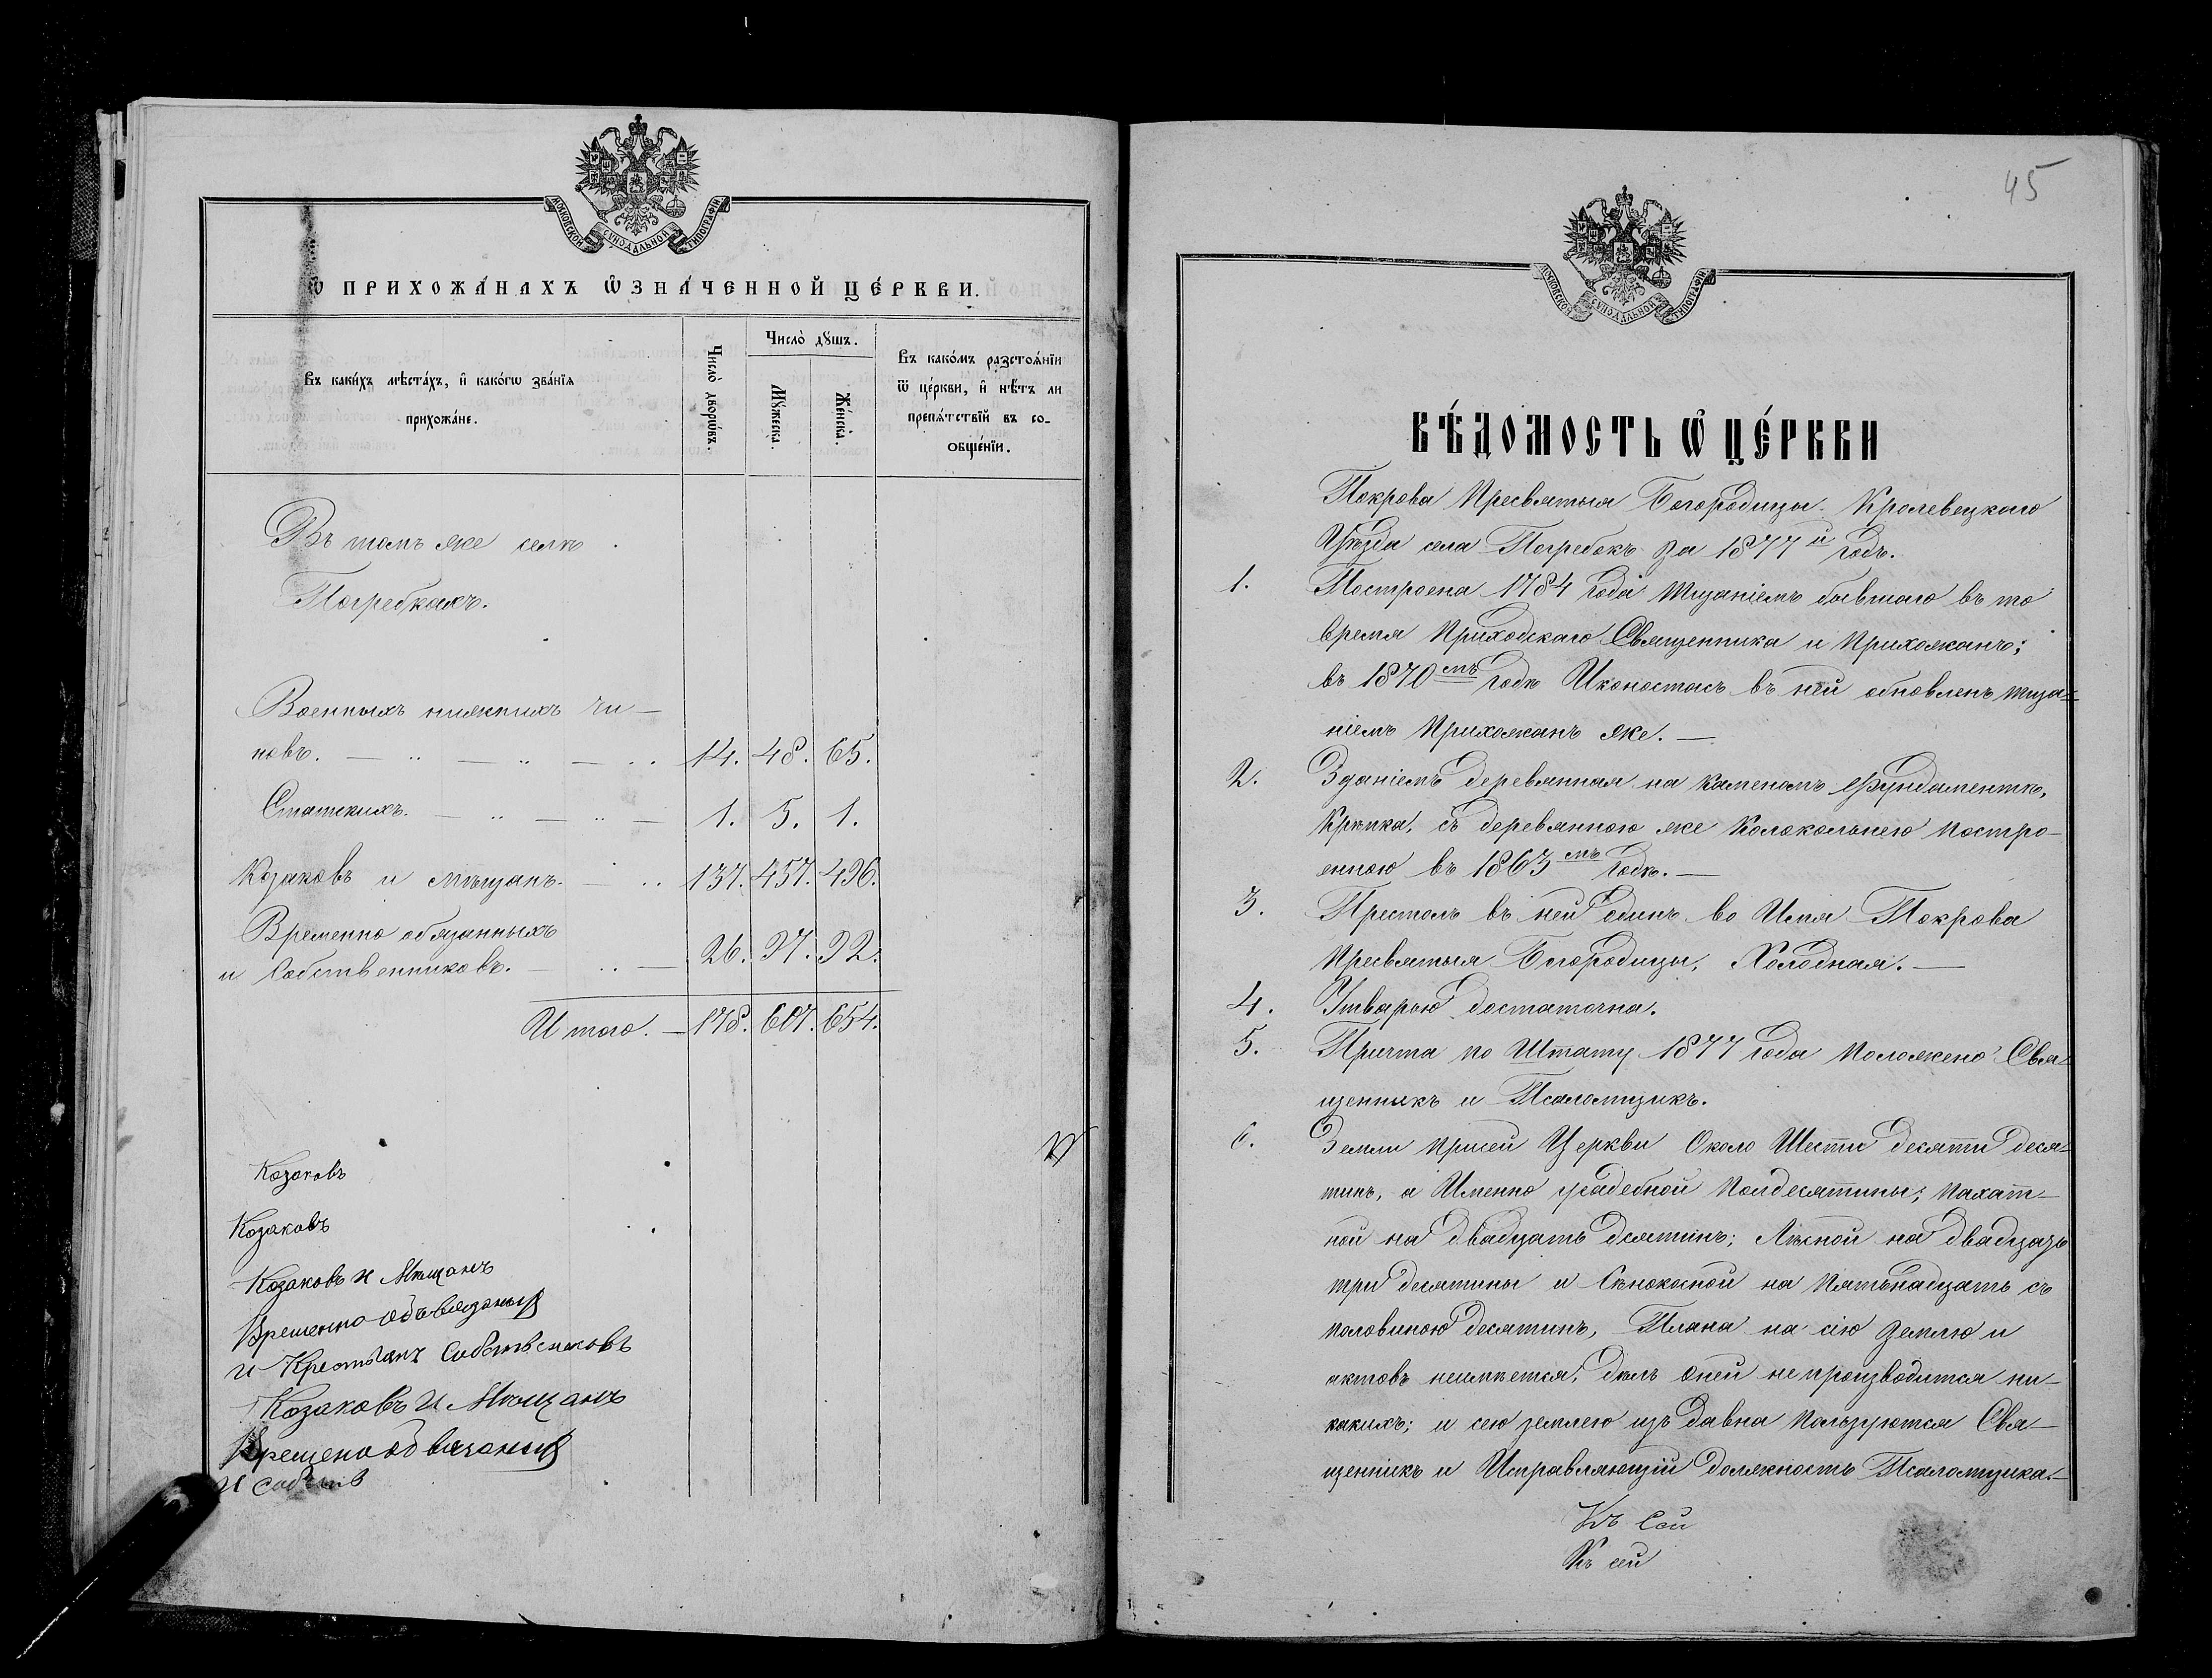 МОСКОВСКОЙ СѴНОДАЛЬНОЙ ТИПОГРАФІИ
Ѽ ПРИХОЖА́НАХЪ Ѽ҆ЗНА́ЧЕННОЙ ЦЕ́РКВИ.
Въ каки́хъ мѣста́хъ, и҆ како́гѡ зва́нїѧ
прихожа́не.
Число̀ дворѡ́въ.
Число̀ дꙋшъ.
Мꙋ́жеска.
Же́нска.
Въ како́мъ разстоѧ́нїи
ѿ це́ркви, и҆ нѣ́тъ ли
препѧ́тствїй въ со-
обще́нїи.
Въ томъ же селѣ
Погребкахъ.
Военныхъ нижнихъ чи-
новъ. — „ — „ — „ 14. 48. 65.
Статскихъ. — „ — „ — 1. 5. 1.
Козаковъ и мѣщанъ. — „ 137. 457. 496.
Временно обязанныхъ
и Собственниковъ. — „ — 26. 97. 92.
Итого. — 178. 607. 654.
Козаковъ
Козаковъ
Козаковъ и Мѣщанъ
и Крестьянъ
Козаковъ и Мѣщанъ
45
МОСКОВСКОЙ СѴНОДАЛЬНОЙ ТИПОГРАФІИ
ВѢ́ДОМОСТЬ Ѽ ЦЕ́РКВИ
Покрова Пресвятыя Богородицы Кролевецкаго
Уѣзда села Погребокъ за 1877й годъ.
1. Построена 1784 года тщаніемъ бывшаго въ то
время Приходскаго Священника и Прихожанъ;
въ 1870мъ годѣ Иконостасъ въ ней обновленъ тща-
ніемъ Прихожанъ же. —
2. Зданіемъ деревянная на каменомъ фундаментѣ,
Крѣпка, съ деревянною же Колокольнею постро-
енною въ 1863мъ годѣ. —
3. Престолъ въ ней единъ во Имя Покрова
Пресвятыя Богородицы, Холодная. —
4. Утварью достаточна.
5. Причта по Штату 1877 года положено Свя-
щенникъ и Псаломщикъ.
6. Земли присей Церкви Около Шести десяти деся-
тинъ, а Именно усадебной Полдесятины; пахат-
ной на двадцать десятинъ; Лѣсной на двадцать
три десятины и Сѣнокосной на Пятьнадцать съ
половиною десятинъ, Плана на сію землю и
актовъ неимѣется, дѣлъ оней непроизводится ни-
какихъ; и сею землею изъ давна Пользуются Свя-
щенникъ и Исправляющій должность Псаломщика. —
Къ Сей
Къ сей